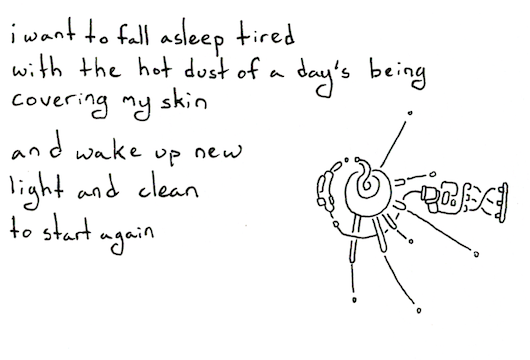 i want to fall asleep tired
with the hot dust of a day's being
covering my skin
and wake up new
light and clean
to start again